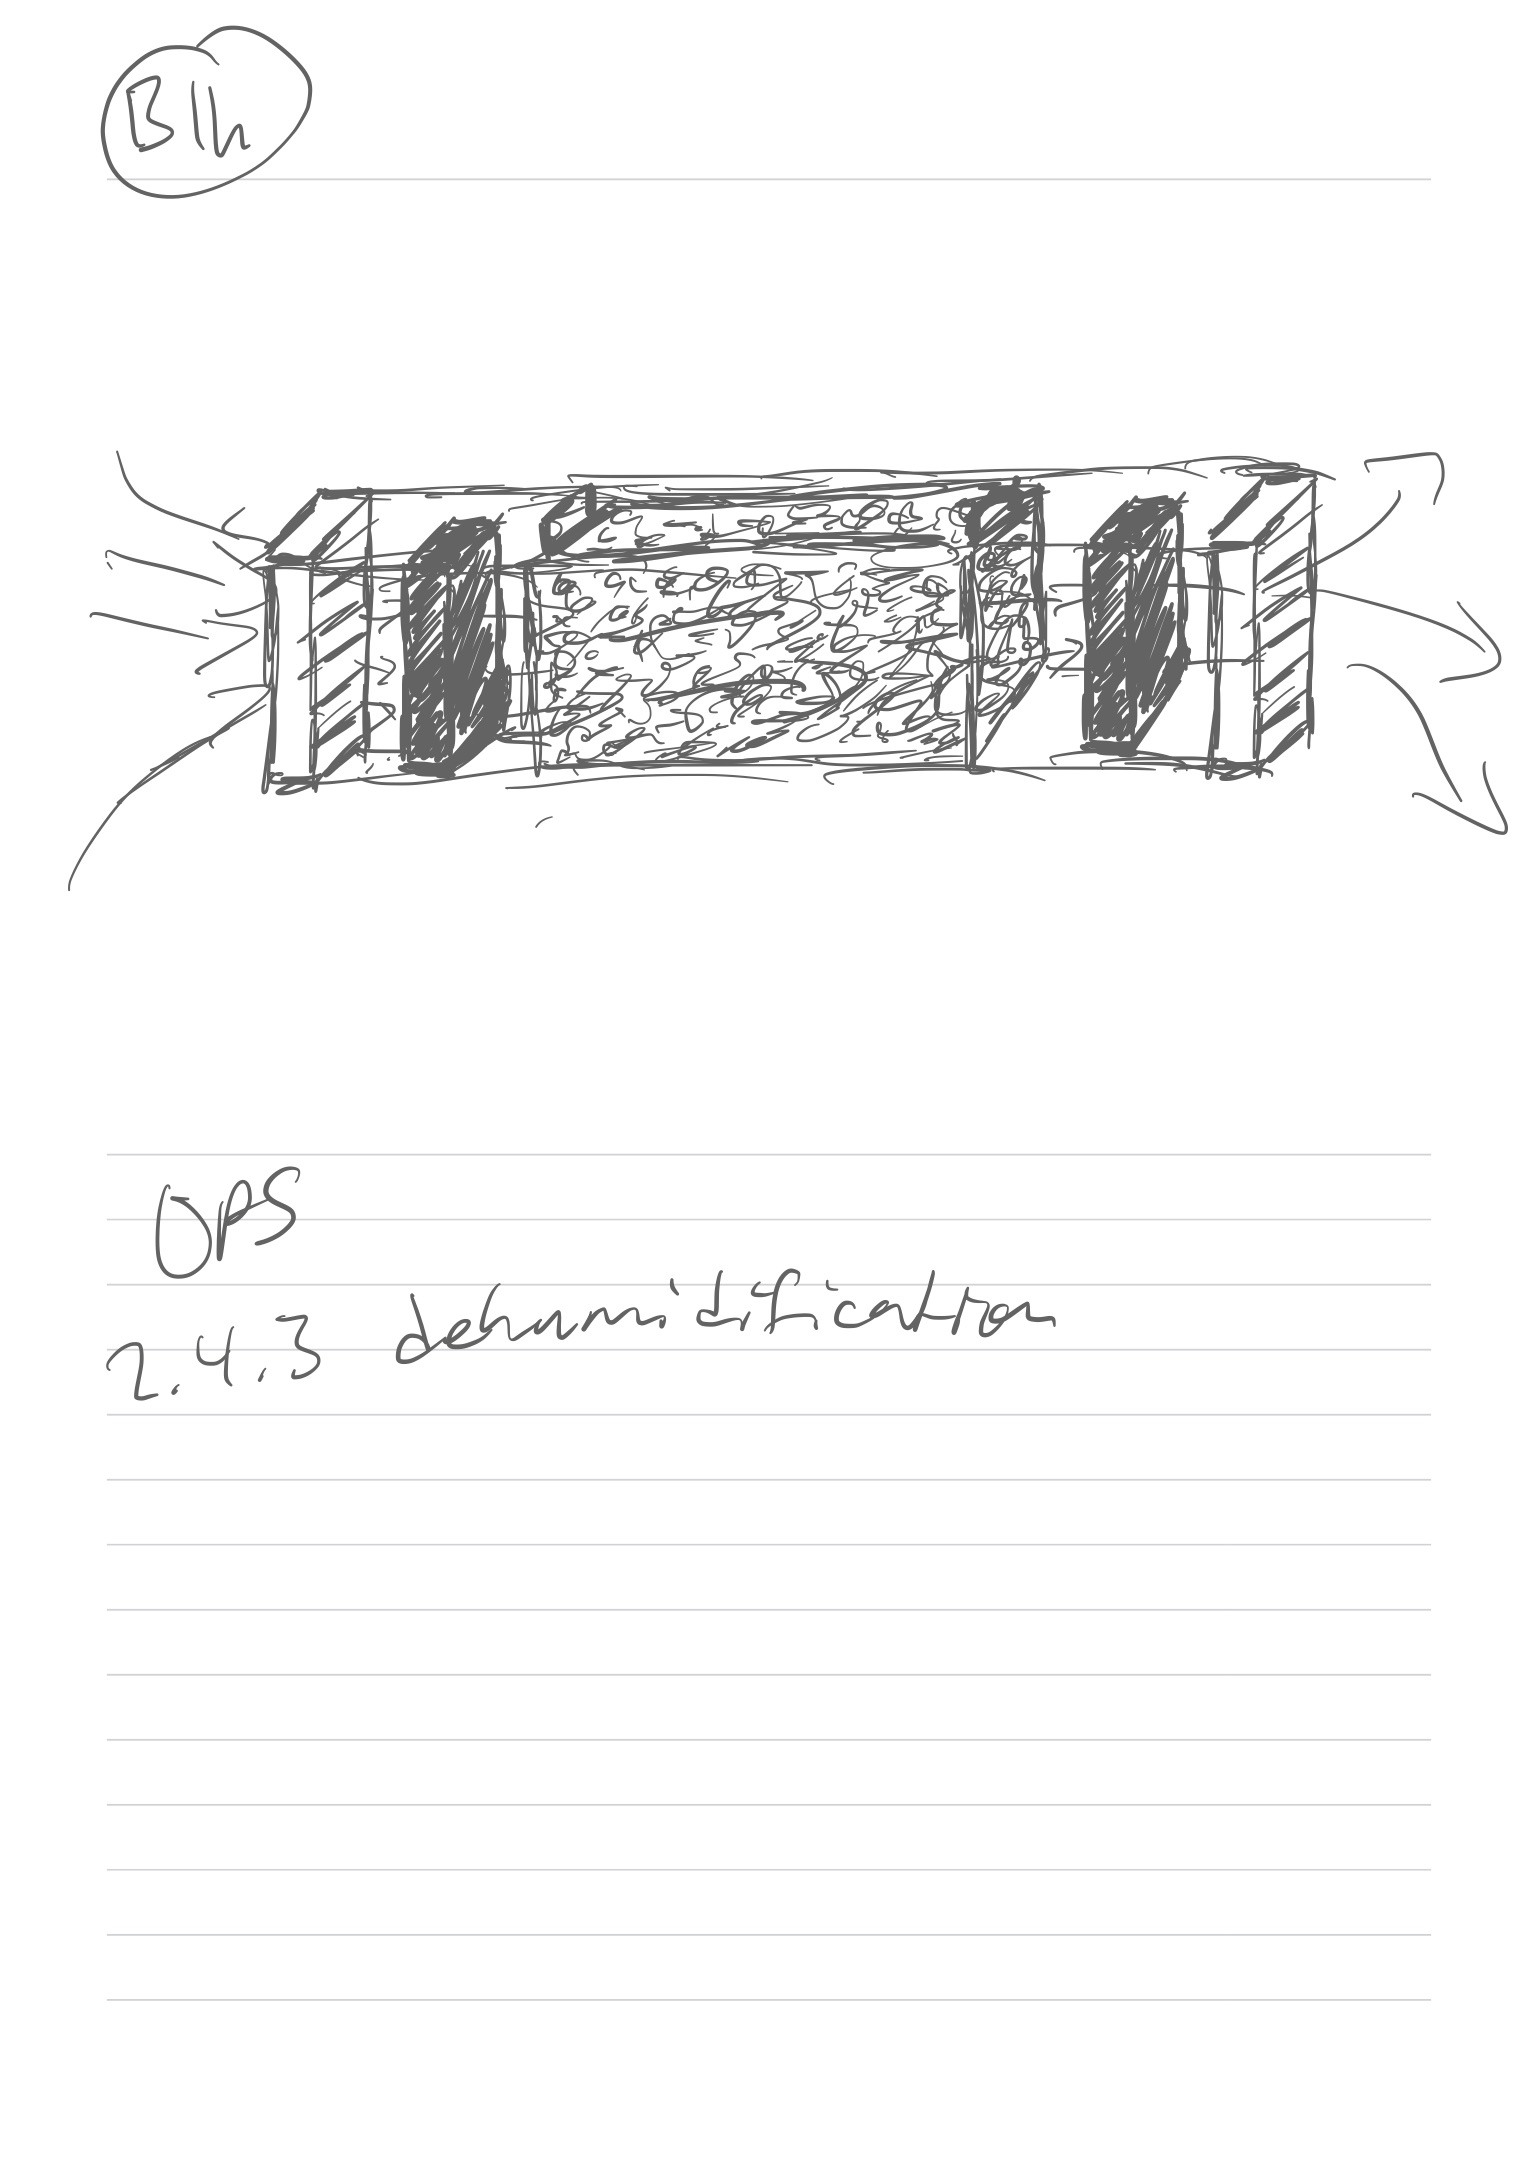 B1h
OPS
2.4.3 dehumidification